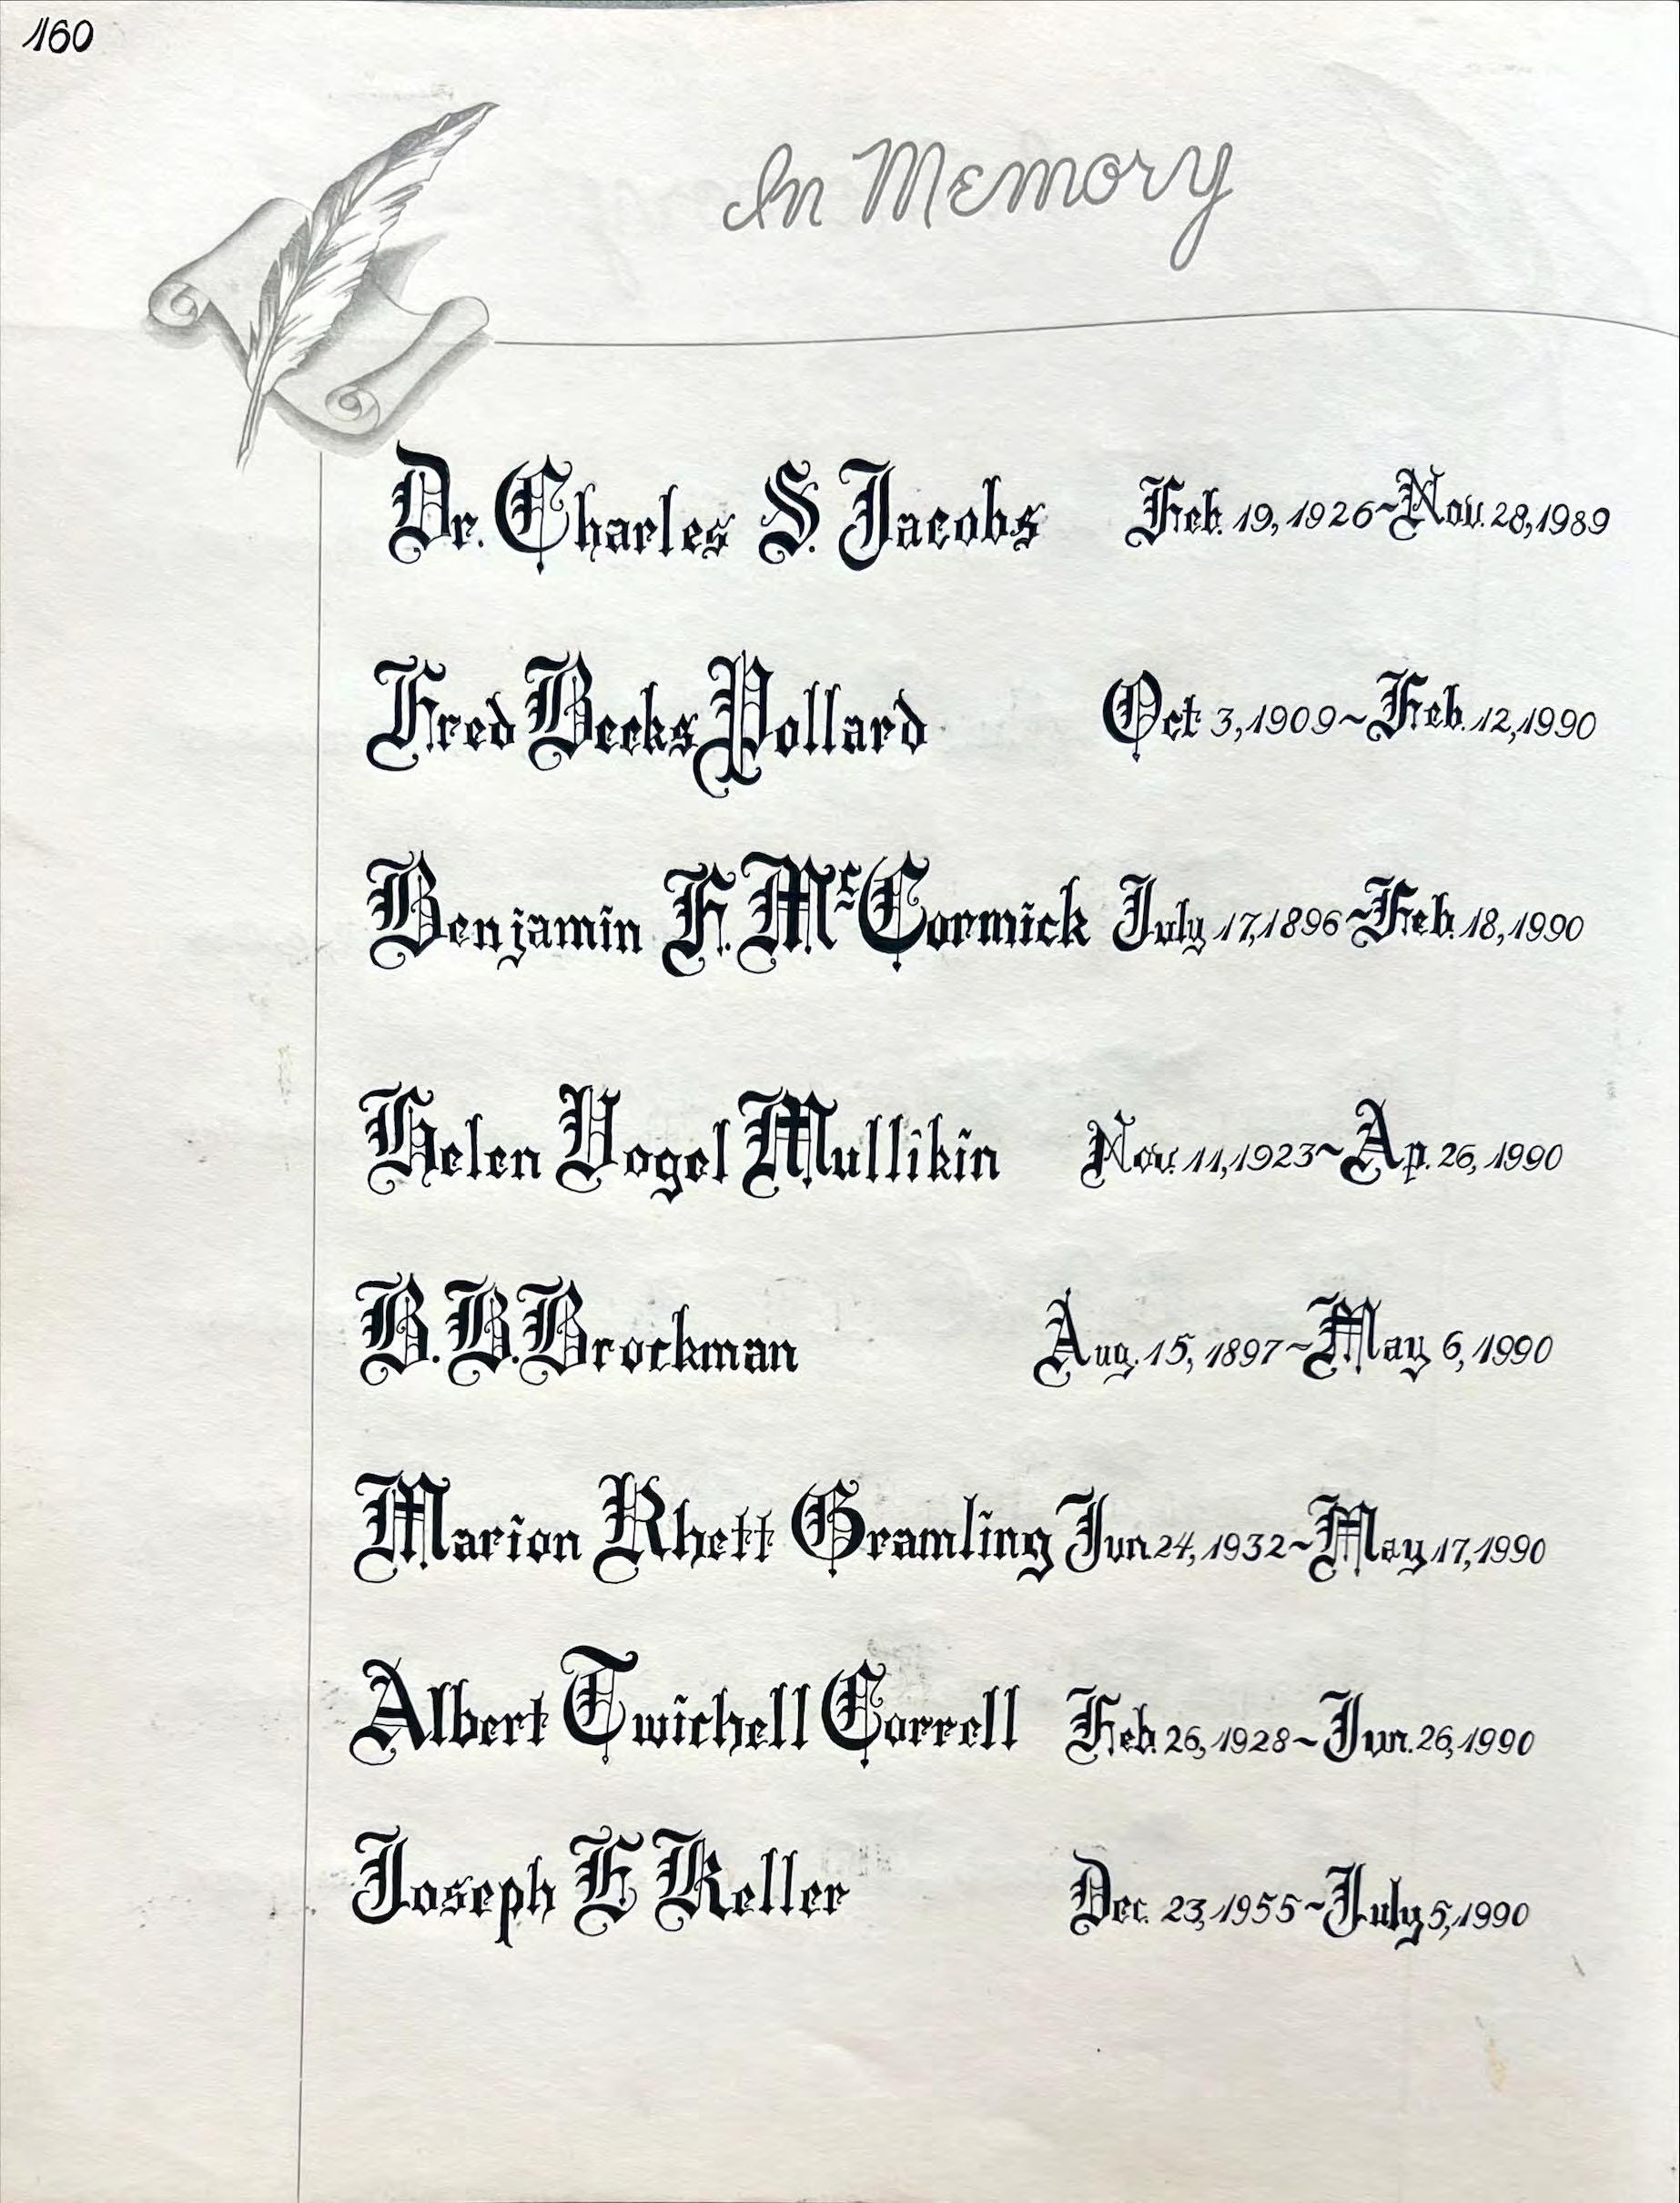 160
In Memory
Dr. Charles S. Jacobs Feb. 19, 1926~Nov. 28, 1989
Fred Becks Pollard Oct 3, 1909~Feb. 12, 1990
Benjamin F. McCormick July 17, 1896~Feb. 18, 1990
Helen Vogel Mullikin Nov. 11, 1923~Ap. 26, 1990
B. B. Brockman Aug. 15, 1897~May 6, 1990
Marion Rhett Gramling Jun 24, 1932~May 17, 1990
Albert Twichell Correll Feb. 26, 1928~Jun. 26, 1990
Joseph E Keller Dec. 23, 1955~July 5, 1990